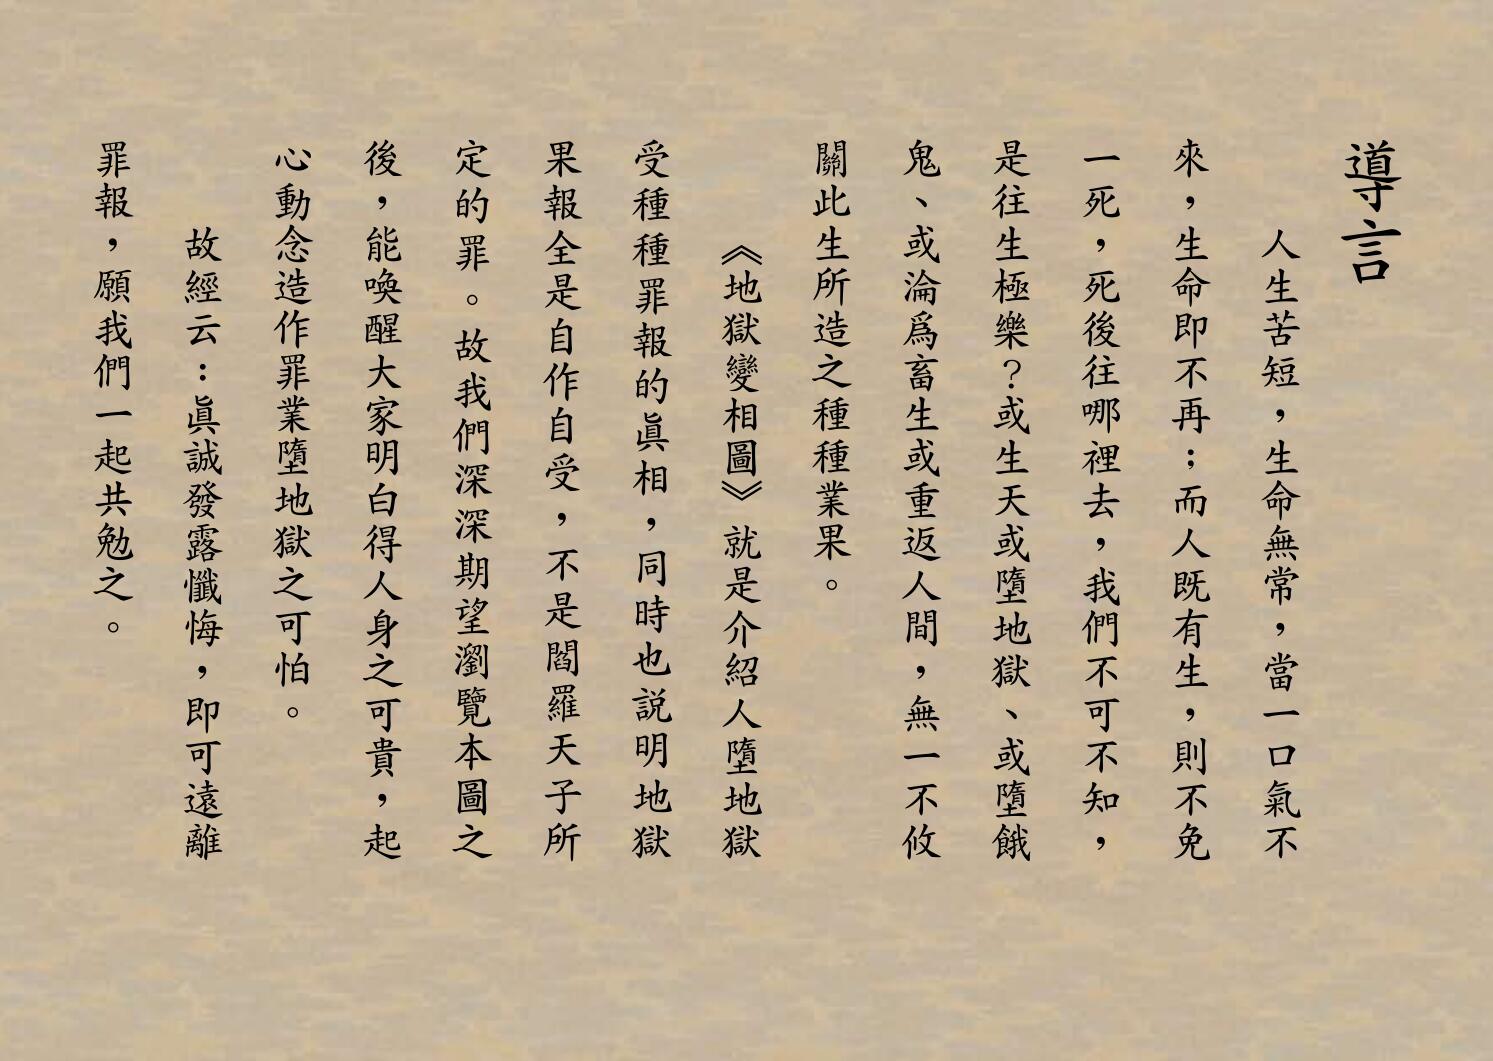 導言
人生苦短，生命無常，當一口氣不
來，生命即不再；而人既有生，則不免
一死，死後往哪裡去，我們不可不知，
是往生極樂？或生天或墮地獄、或墮餓
鬼、或淪爲畜生或重返人間，無一不攸
關此生所造之種種業果。
《地獄變相圖》就是介紹人墮地獄
受種種罪報的眞相，同時也説明地獄
果報全是自作自受，不是閻羅天子所
定的罪。故我們深深期望瀏覽本圖之
後，能喚醒大家明白得人身之可貴，起
心動念造作罪業墮地獄之可怕。
故經云：眞誠發露懺悔，即可遠離
罪報，願我們一起共勉之。